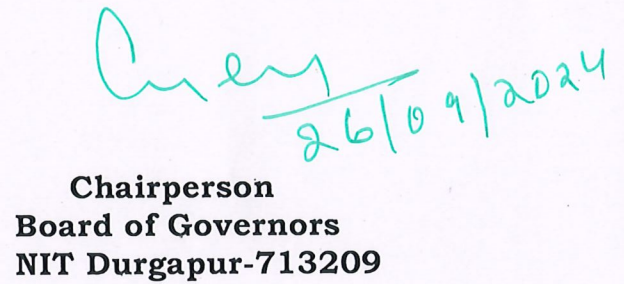 26/09/2024
Chairperson
Board of Governors
NIT Durgapur-713209